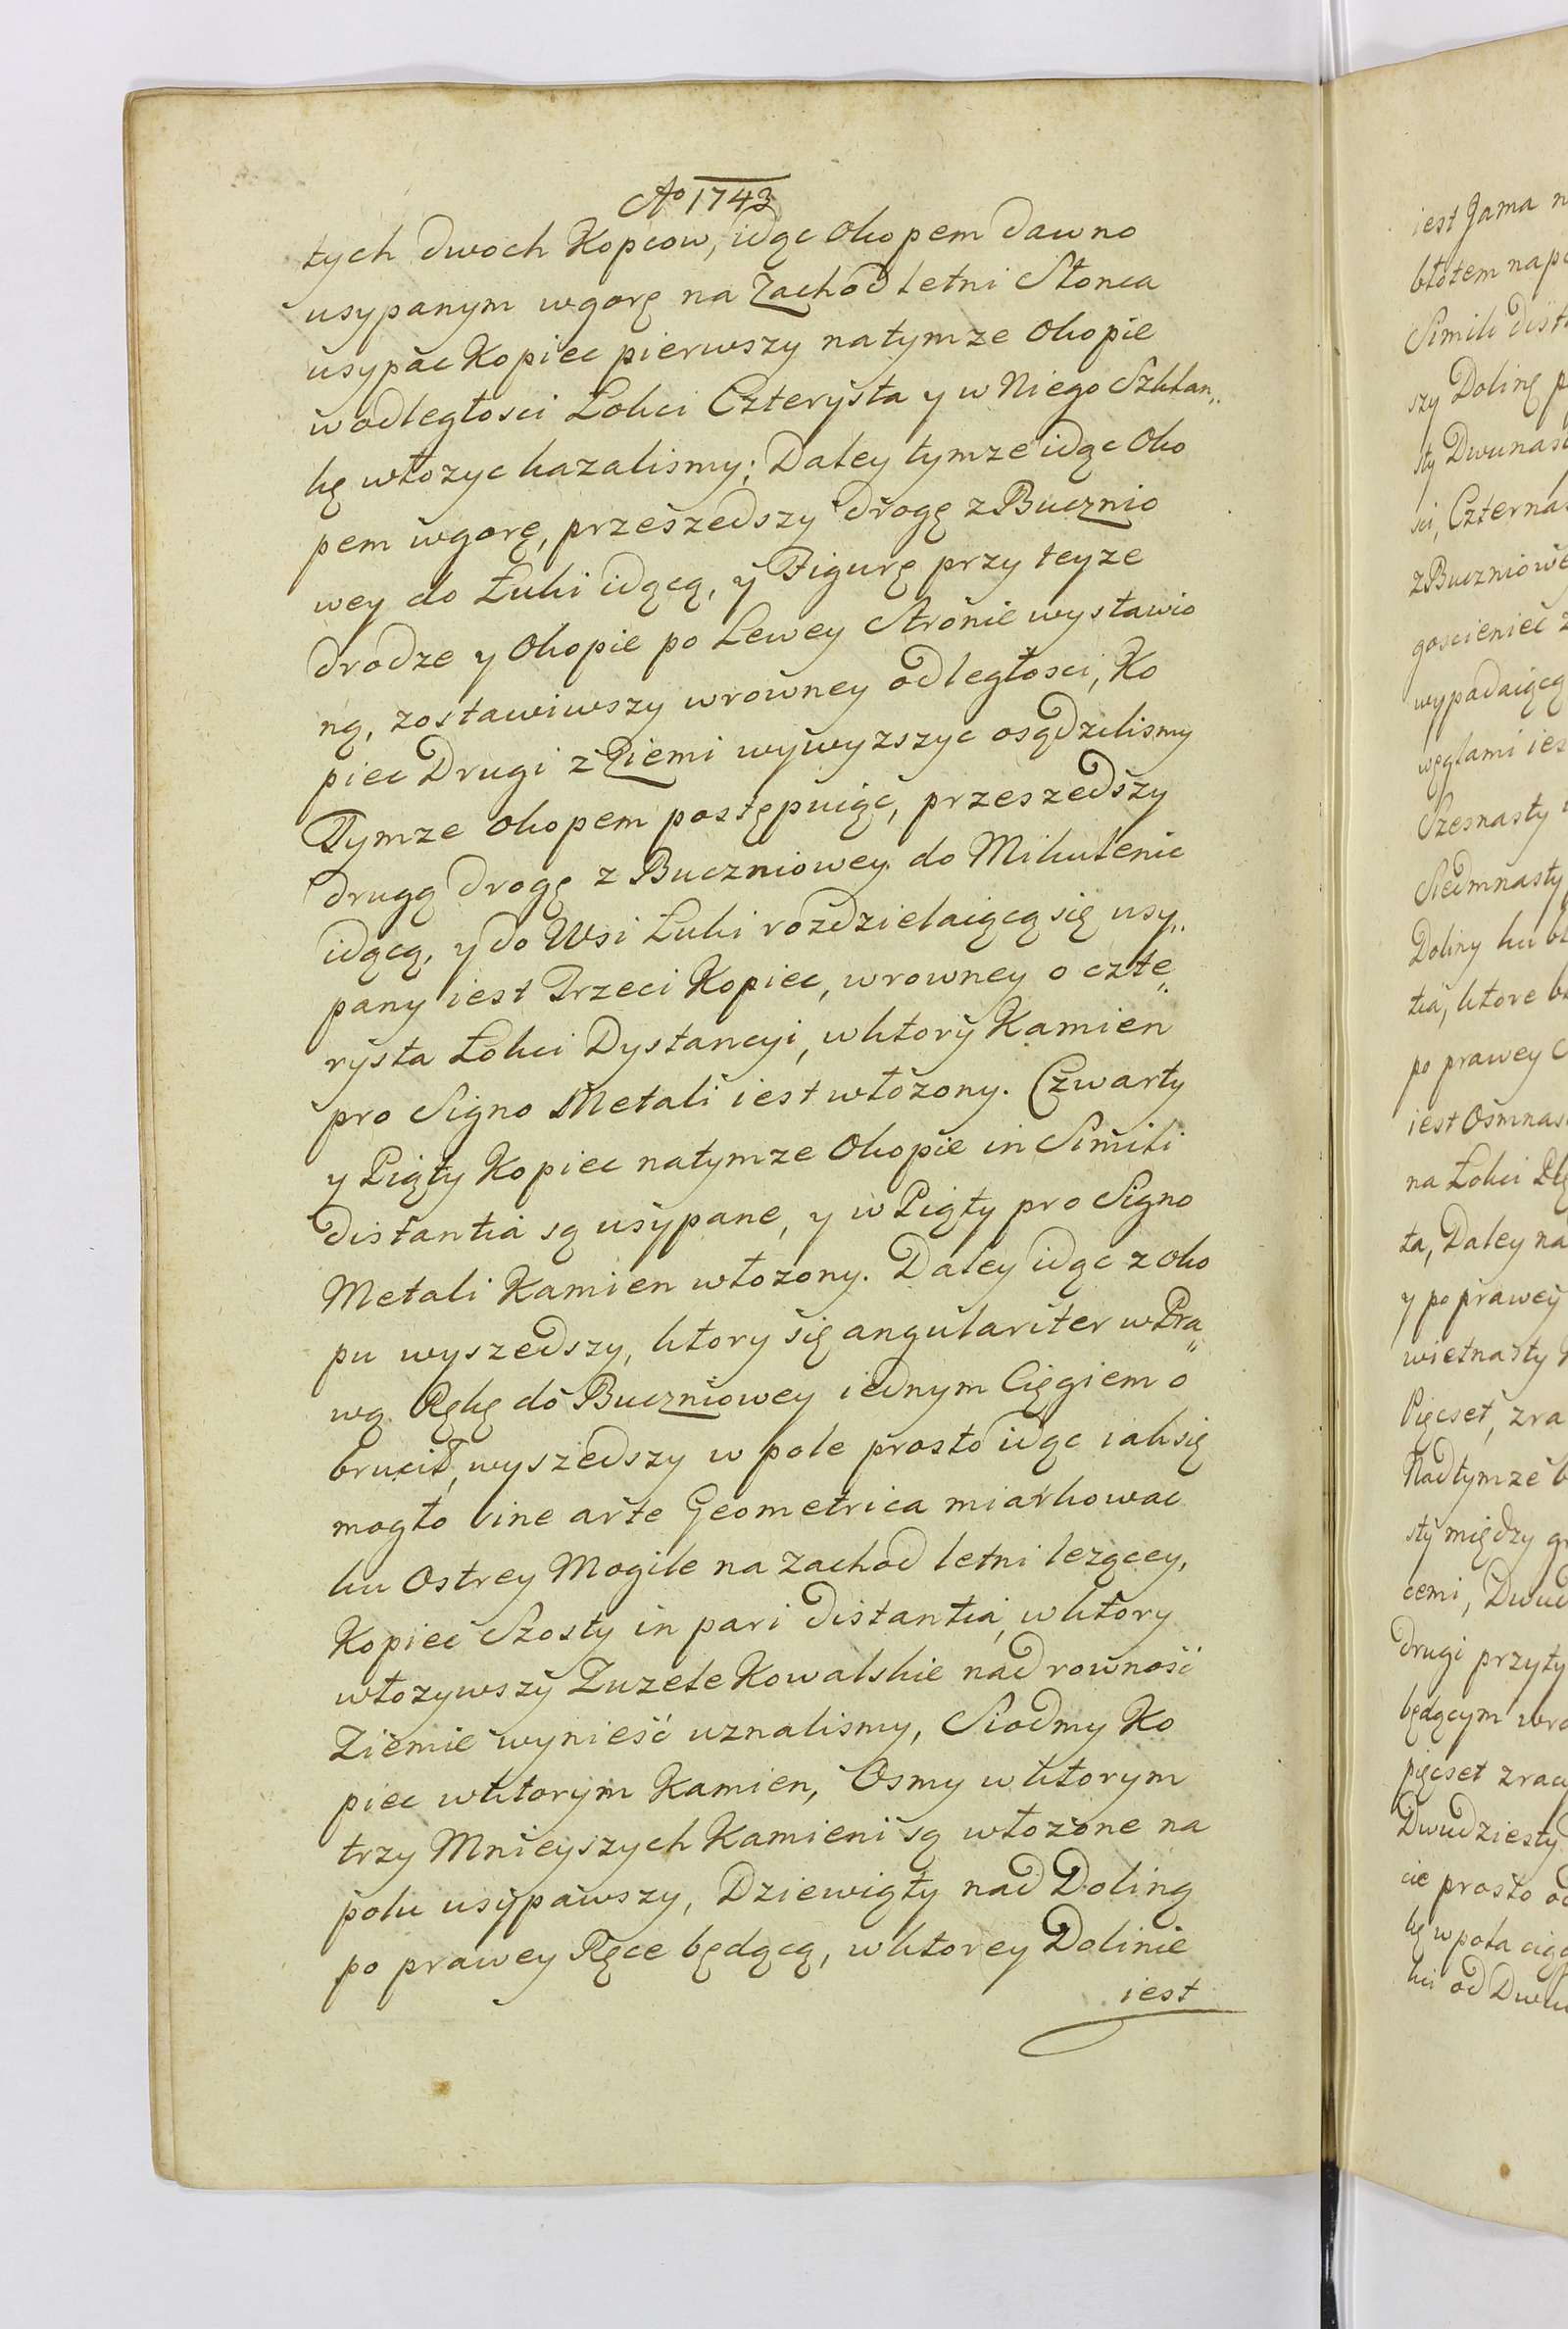 Ao 1743
tych dwoch Kopcow, idąc Okopem dawno
usypanym wgorę na Zachod letni Słonca
usypac Kopiec pierwszy na tymze Okopie
w odległosci Łokci Czterysta y w Niego Szklan„
kę włozyc kazalismy; Daley tymze idąc Oko
pem wgorę, przeszedszy drogę z Bucznio
wey do Łuki idącą, y Figurę przy teyze
drodze y Okopie po Lewey Stronie wystawio
ną, zostawiwszy wrowney odległosci, Ko
piec Drugi z Ziemi wywyzszyc osądzilismy
Tymze Okopem postępuiąc, przeszedszy
drugą drogę z Buczniowey do Mikulenic
idącą, y do Wsi Łuki rozdzielaiącą się usy„
pany iest Trzeci Kopiec, wrowney o czte„
rysta Łokci Dystancyi, w ktory Kamien
pro Signo Metali iest włozony. Czwarty
y Piąty Kopiec na tymze Okopie in Simili
distantia są usypane, y w Piąty pro Signo
Metali Kamien włozony. Daley idąc z Oko
pu wyszedszy, ktory się angulariter w Pra„
wą Rękę do Buczniowey iednym Ciągiem o
brucił, wyszedszy w pole prosto idąc iak się
mogło sine arte Geometrica miarkowac
ku Ostrey Mogile na Zachod letni lezącey,
Kopiec Szosty in pari distantia, w ktory
włozywszy Zuzele Kowalskie nad rowność
Ziemie wynieść uznalismy, Siodmy Ko
piec w ktorym Kamien, Osmy w ktorym
trzy Mnieyszych Kamieni są włozone na
polu usypawszy, Dziewiąty nad Doliną
po prawey Ręce będącą, w ktorey Dolinie
iest
iest Jama
Simili
szy Dolinę
sci,
z Buczniowe
goscieniec
wypadaiącą
węglami
Szesnasty
Siedmnasty
Doliny ku
tia, ktore
po prawey
iest
na Łokci
ta, Daley na
y po prawey
Pięcset,
Nad tymze
sty między
cemi,
drugi
będącym
pięcset
Dwudziesty
cie prosto
kci od